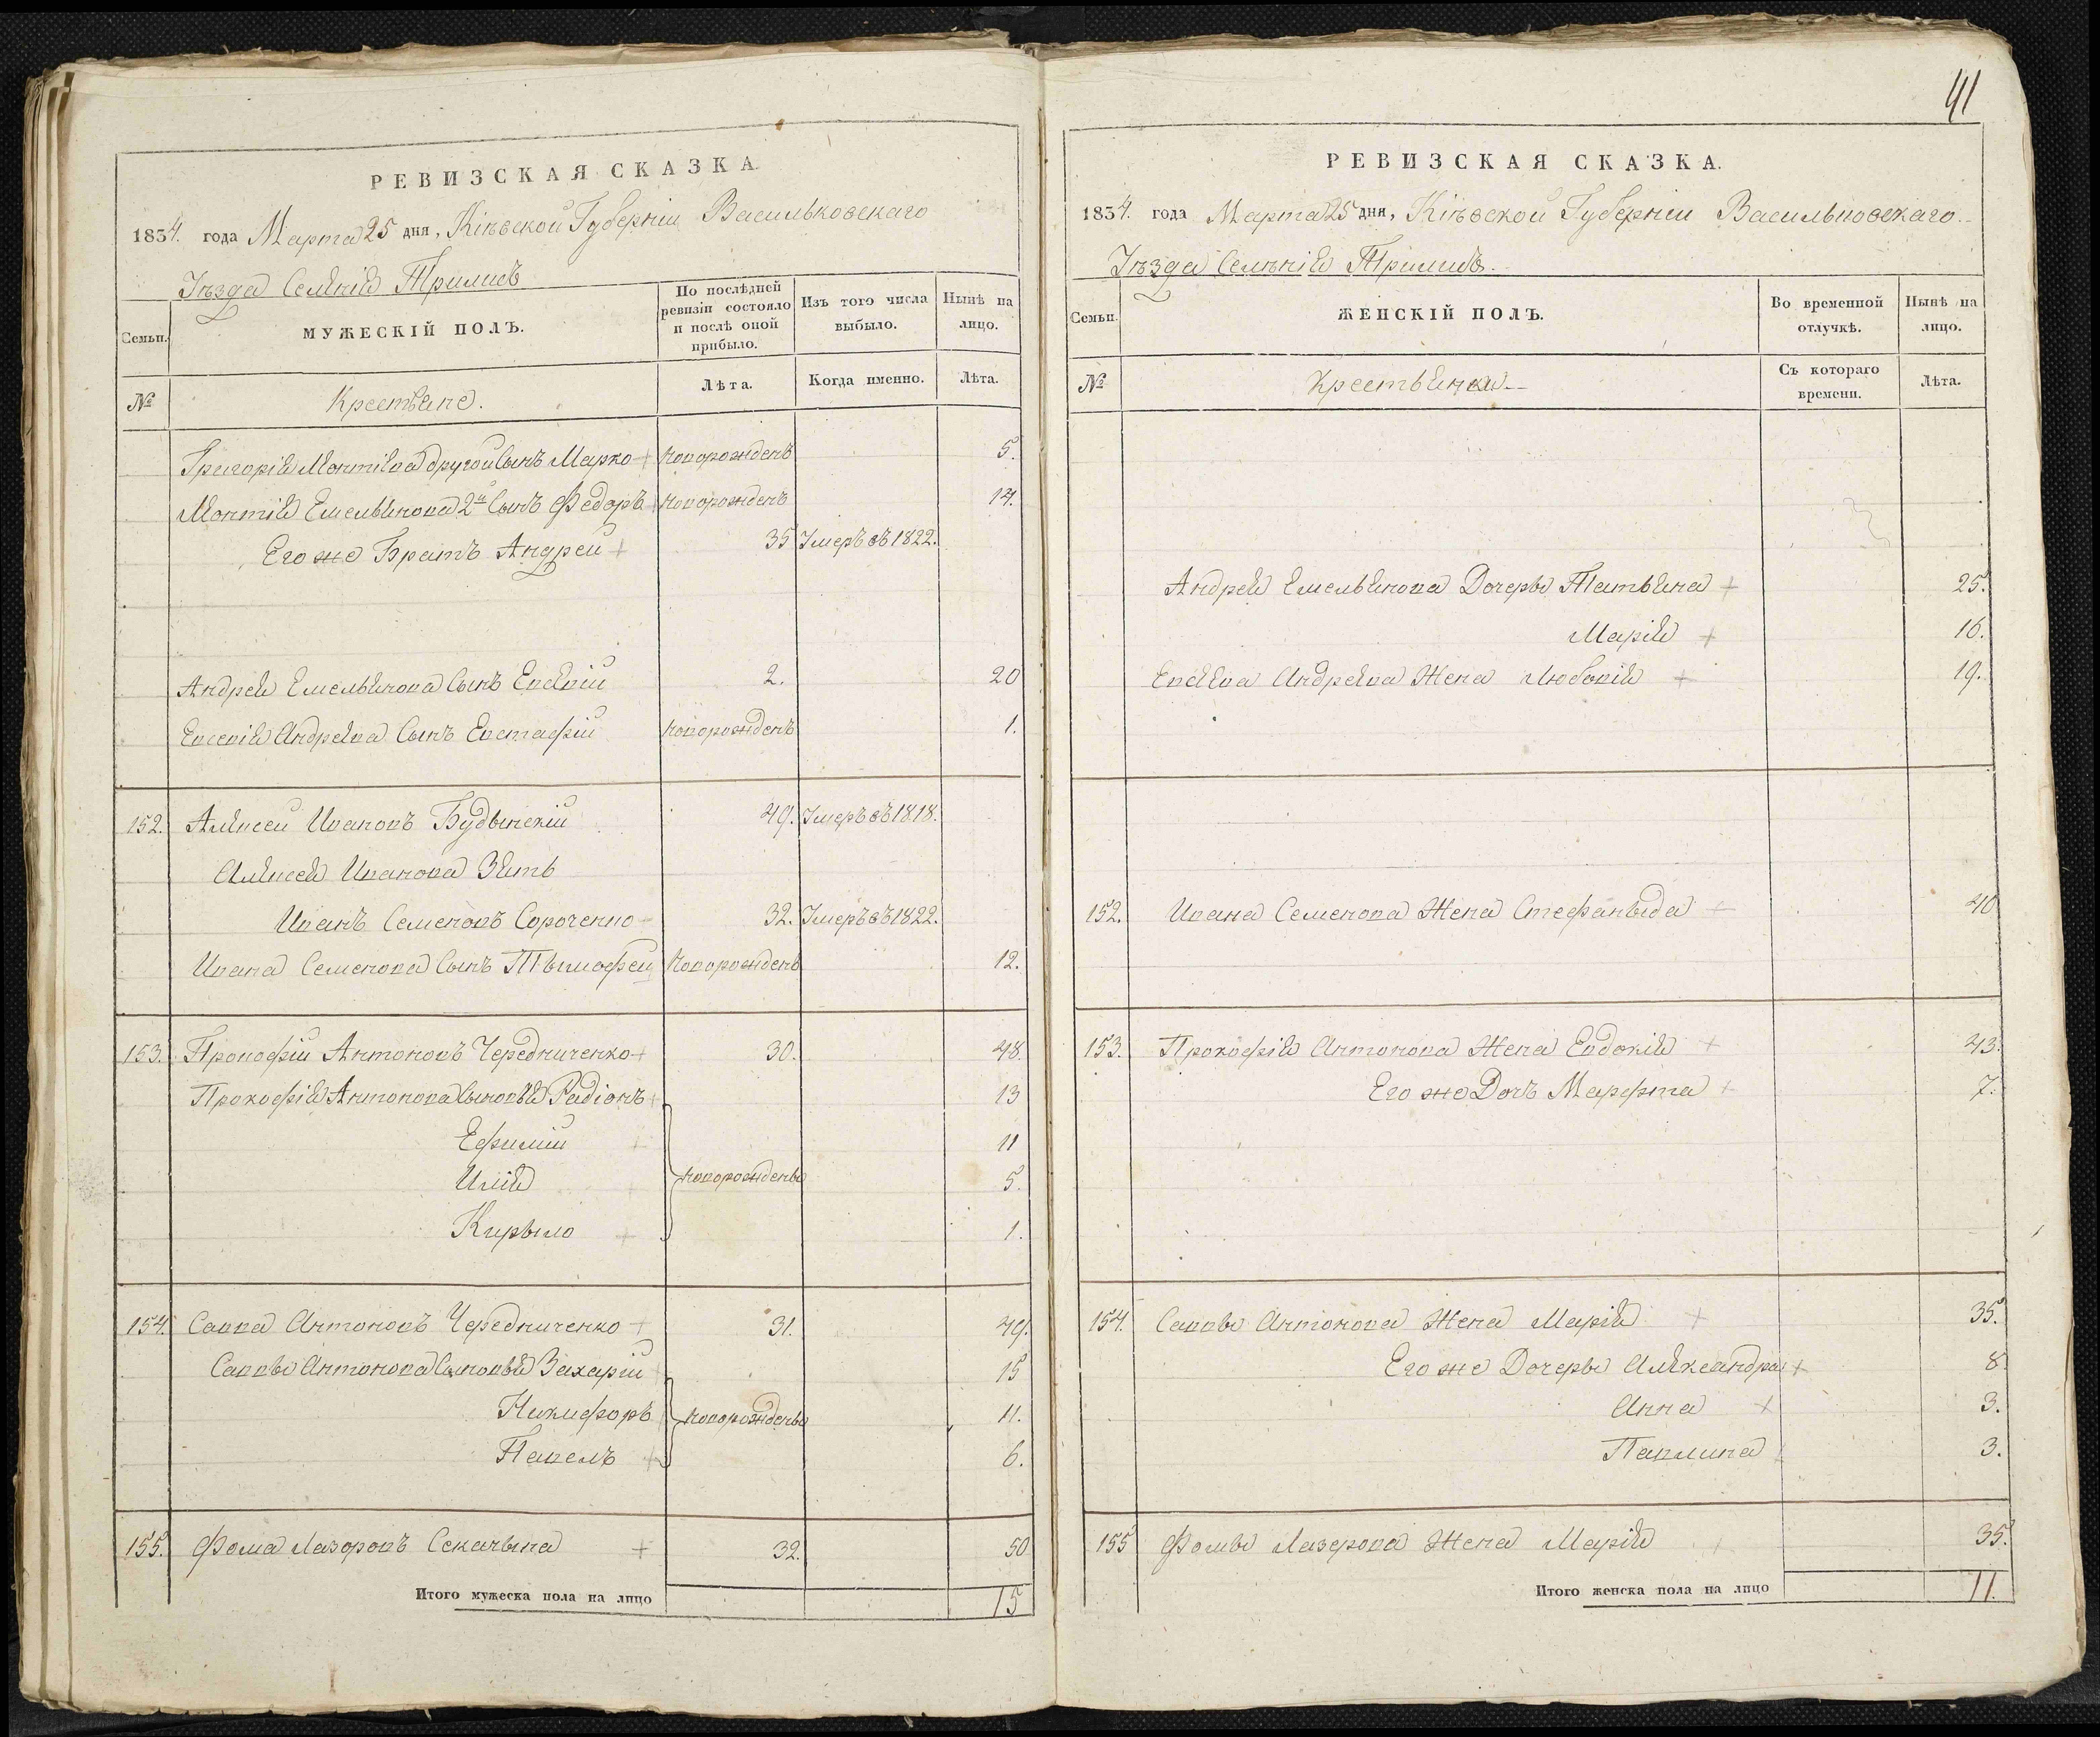 РЕВИЗСКАЯ СКАЗКА.
1834. года Марта 25 дня, Кіевской Губерніи Васильковскаго
Уѣзда Селенія Трилисъ
Семьи.
МУЖЕСКІЙ ПОЛЪ.
По послѣдней ревизіи состояло и послѣ оной прибыло.
Изъ того числа выбыло.
Нынѣ на лицо.
№
Крестьяне.
Лѣта.
Когда именно.
Лѣта.
Григорія Монтіева другой Сынъ Марко + новорожденъ 5.
Монтія Емельянова 2й Сынъ Федоръ + новорожденъ 14.
Его же Братъ Андрей + 35 Умеръ въ 1822.
Андрея Емельянова Сынъ Евсевій 2. 20
Евсевія Андреева Сынъ Евстафій новорожденъ 1.
152. Алексей Ивановъ Будянскій 49. Умеръ въ 1818.
Алексея Иванова Зять
Иванъ Семеновъ Сороченко 32. Умеръ въ 1822.
Ивана Семенова Сынъ Тымофей Новорожденъ 12.
153. Прокофій Антоновъ Чередниченко + 30. 48.
Прокофія Антонова Сыновья Радіонъ + 13
Ефимій + 11
Илія новорожденны 5.
Кирыло + 1.
154. Савва Антоновъ Чередниченко + 31. 49.
Саввы Антонова Сыновья Захарій 15
Никифоръ новорожденны 11.
Павелъ + 6.
155. Фома Лазоровъ Секачына + 32. 50
Итого мужеска пола на лицо 15
41
РЕВИЗСКАЯ СКАЗКА.
1834. года Марта 25 дня, Кіевской Губерніи Васильковскаго
Уѣзда Селенія Трилисъ.
Семьи.
ЖЕНСКІЙ ПОЛЪ.
Во временной отлучкѣ.
Нынѣ на лицо.
№
Крестьянки.
Съ котораго времени.
Лѣта.
Андрея Емельянова Дочеры Татьяна + 25.
Марія + 16.
Евсевія Андреева Жена Любовія + 19.
152. Ивана Семенова Жена Стефаныда + 40
153. Прокофія Антонова Жена Евдокія + 43.
Его же Дочь Марфта + 7.
154. Саввы Антонова Жена Марія + 35.
Его же Дочеры Александра + 8
Анна + 3.
Павлина 3.
155 Фомы Лазерова Жена Марія 35.
Итого женска пола на лицо 11.